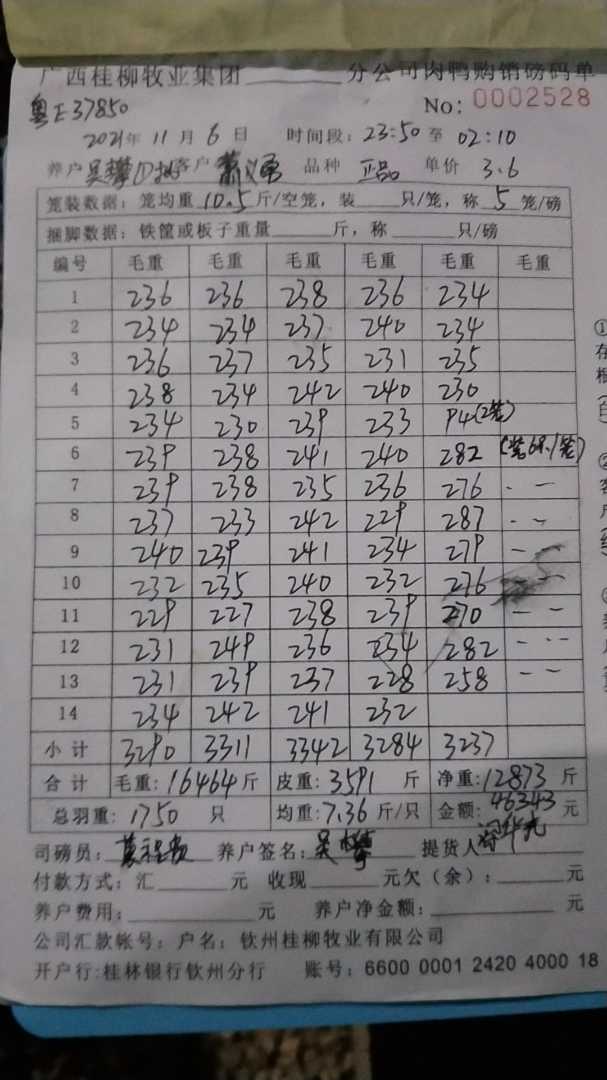 广西桂柳牧业集团______分公司肉鸭购销磅码单
粤E37850 No: 0002528
2021年 11月 6日 时间段: 23:50 至 02:10
养户 吴攀 客户 萧义勇 品种 正品 单价 3.6
笼装数据: 笼均重 10.5 斤/空笼, 装____只/笼, 称 5 笼/磅
捆脚数据: 铁筐或板子重量______斤, 称______只/磅
编号 毛重 毛重 毛重 毛重 毛重 毛重
1 236 236 238 236 234
2 234 234 237 240 234
3 236 237 235 231 235
4 238 234 242 240 230
5 234 230 239 233 94(2笼)
6 239 238 241 240 282
7 239 238 235 236 276 - —
8 237 233 242 229 287 - —
9 240 239 241 234 279 — -
10 232 235 240 232 276 - —
11 229 227 238 239 270 — —
12 231 249 236 234 282 — —
13 231 239 237 228 258 — —
14 234 242 241 232
小计 3290 3311 3342 3284 3237
合计 毛重: 16464 斤 皮重: 3591 斤 净重: 12873 斤
总羽重: 1750 只 均重: 7.36 斤/只 金额: 46343 元
司磅员: 养户签名: 吴攀 提货人
付款方式: 汇______元 收现______元欠(余): ______元
养户费用: ______元 养户净金额: ______元
公司汇款帐号: 户名: 钦州桂柳牧业有限公司
开户行:桂林银行钦州分行 账号: 6600 0001 2420 4000 18
①
存
根
(
白
②
客
户